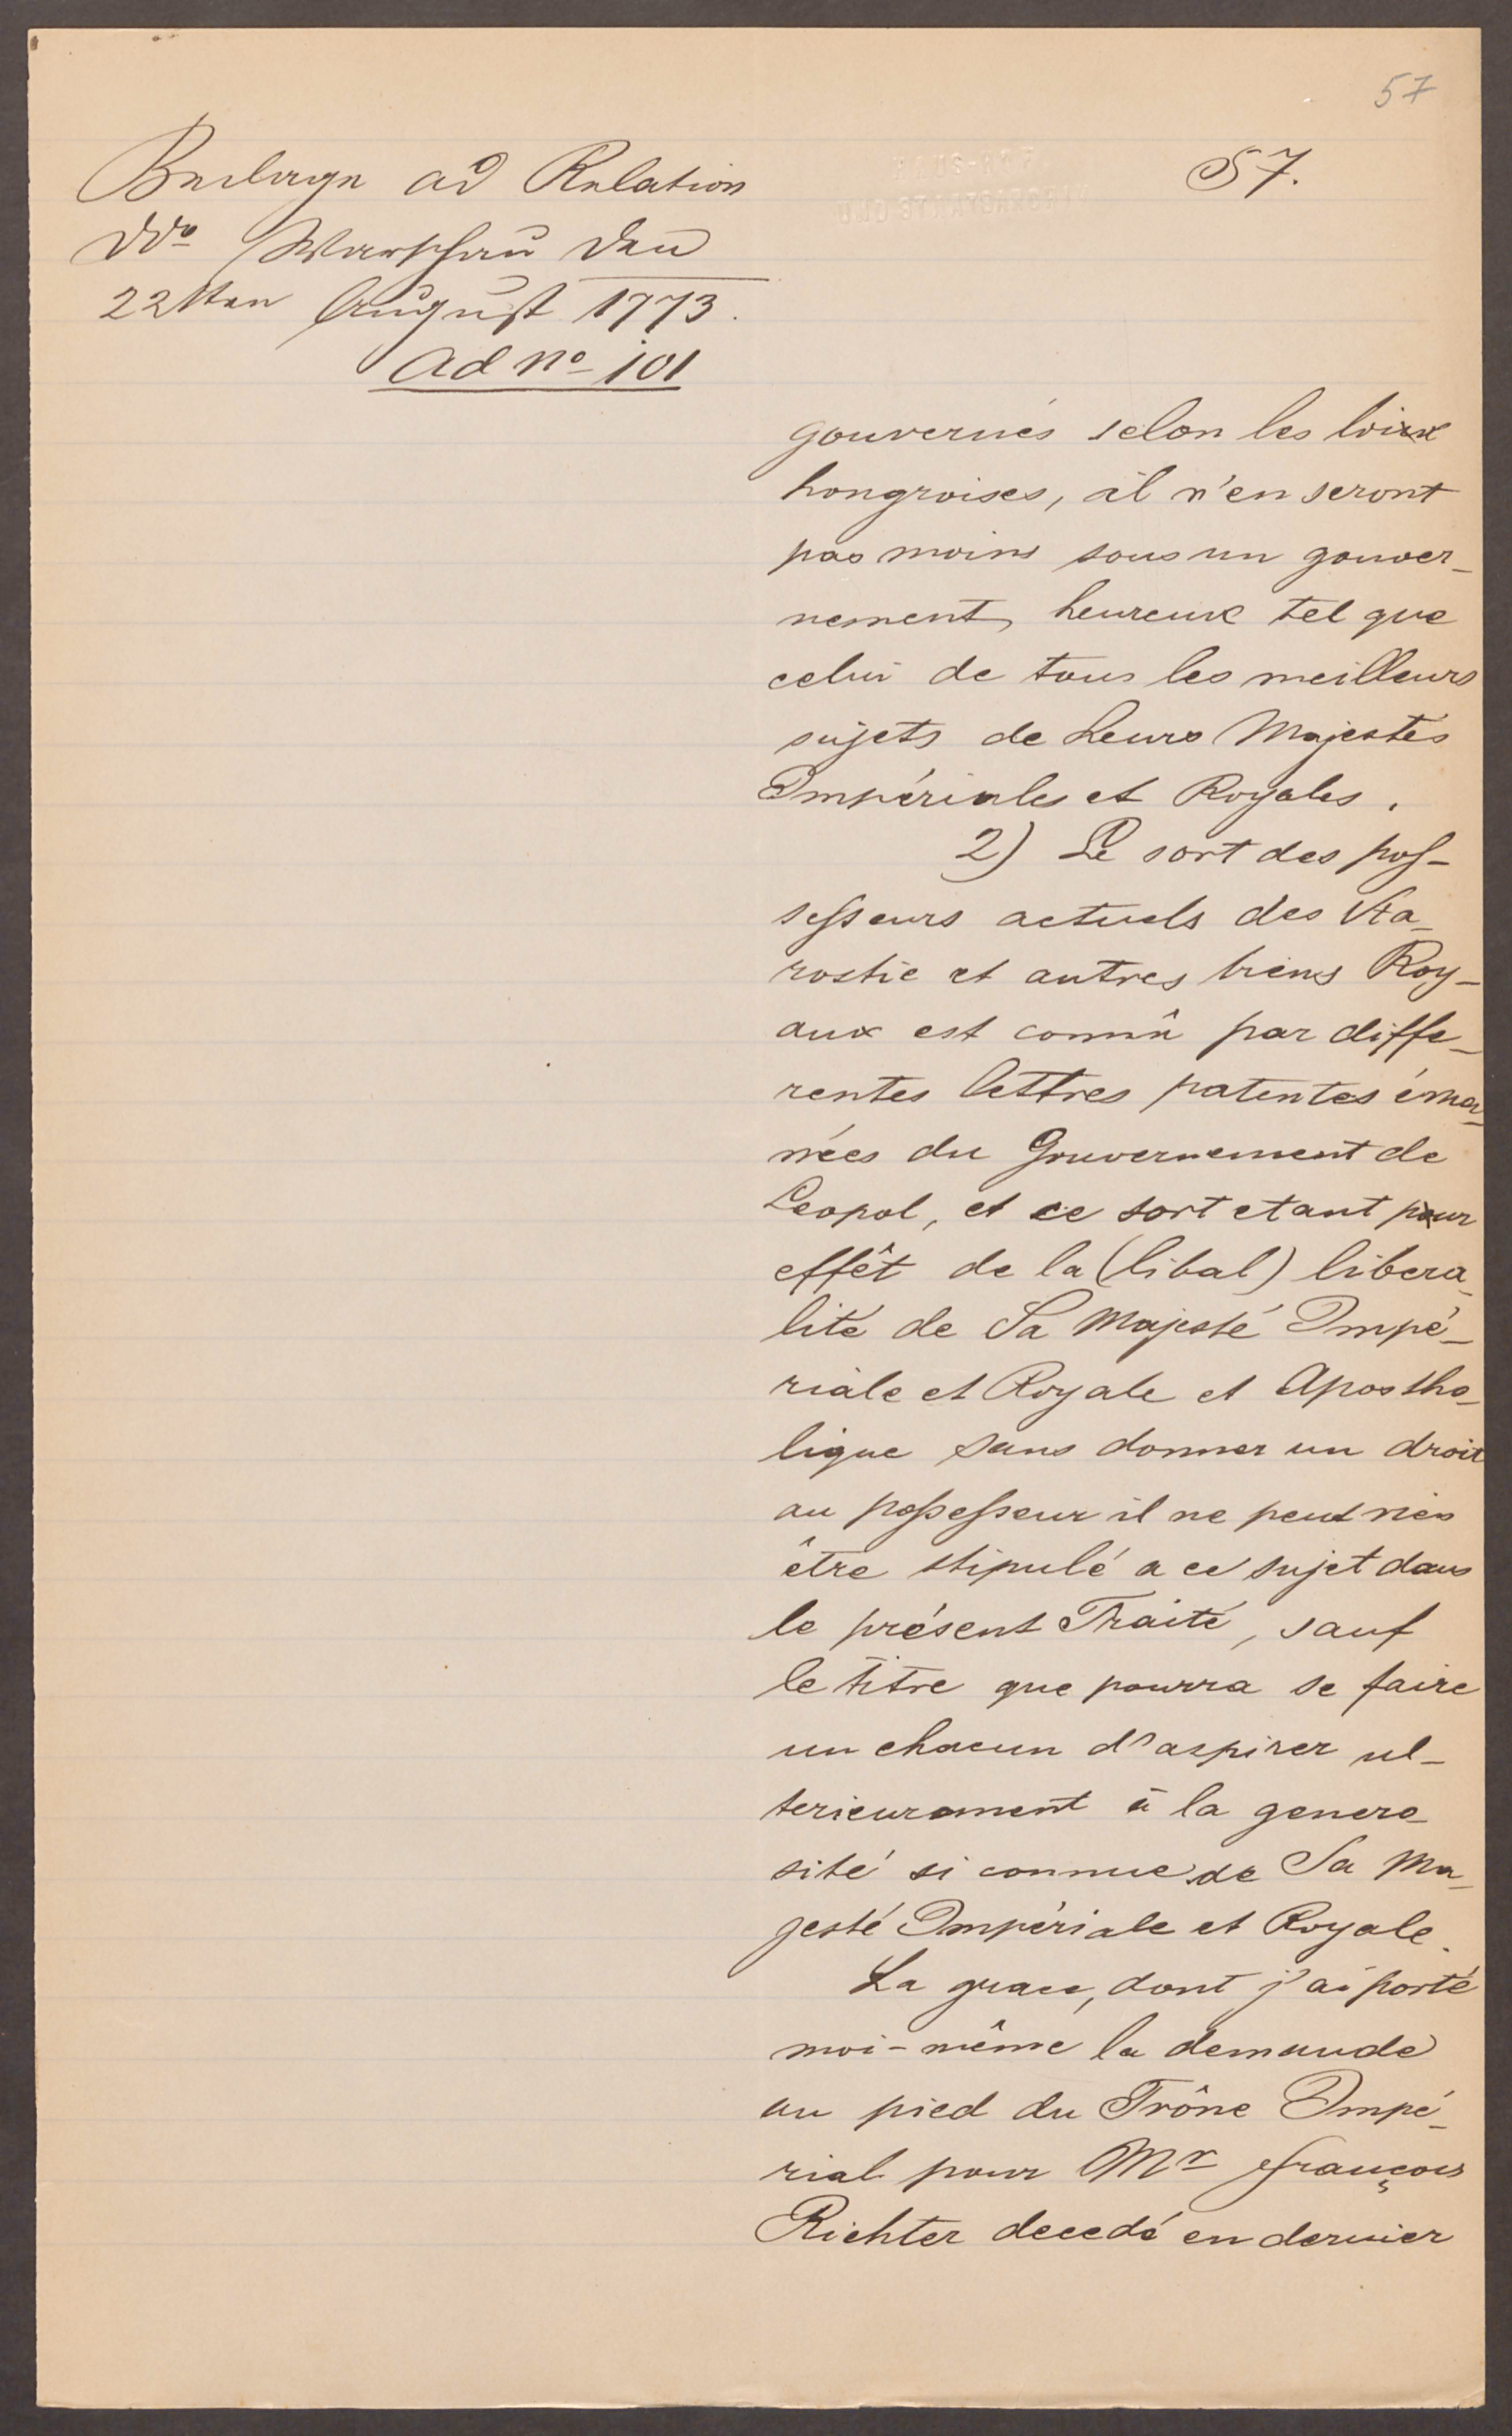 57
57.
Beilage ad Relation
ddo Warschau den
22sten August 1773.
ad no 101
gouvernés selon les loix
hongroises, il n'en seront
pas moins sous un gouver-
nement, heureux tel que
celui de tous les meilleurs
sujets de Leurs Majestés
Impériales et Royales.
2) Le sort des pos-
sesseurs actuels des Sta-
rostie et autres biens Roy-
aux est connû par diffe-
rentes lettres patentes éma-
nées du Gouvernement de
Leopol, et ce sort etant pour
effêt de la (libal) libera-
lité de Sa Majesté Impé-
riale et Royale et Apostho-
lique sans donner un droit
au possesseur il ne peut rien
être stipulé a ce sujet dans
le présent Traité, sauf
le titre que pourra se faire
un chacun d'aspirer ul-
terieurement à la genero-
sité si connue de Sa Ma-
jesté Impériale et Royale.
La grace, dont j'ai porté
moi-même la demande
au pied du Trône Impé-
rial pour Mr François
Richter decedé en dernier